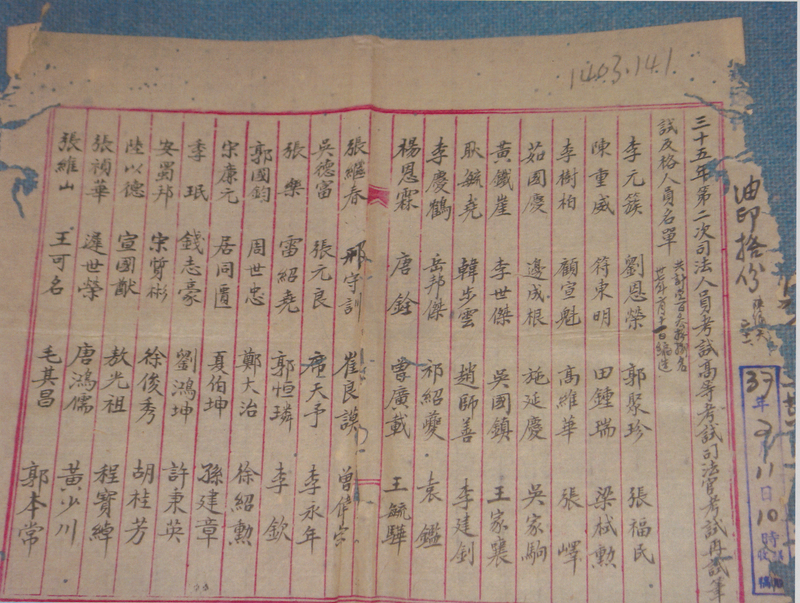 1403.141.
油印拾份
37年2月11日10時
三十五年第二次司法人員考試高等考試司法官考試再試筆
試及格人員名單
李元簇 劉恩榮 郭聚珍 張福民
陳重威 符東明 田鍾瑞 梁棫勳
李樹柏 顧宣魁 高維華 張嶧
茹國慶 邊成根 施延慶 吳家駒
黃鐵崖 李世傑 吳國鎮 王家襄
耿毓堯 韓步雲 趙師善 李建釗
李慶鶴 岳邦傑 祁紹夔 袁鑑
楊恩霖 唐銓 曹廣載 王毓驊
張繼春 邢守訓 崔良謨 曾偉
吳德富 張元良 席天予 李永年
張樂 雷紹堯 郭恒璘 李欽
郭國鈞 周世忠 鄭大治 徐紹勳
宋廉元 居同匱 夏伯坤 孫建章
季珉 錢志豪 劉鴻坤 許秉英
安蜀邦 宋質彬 徐俊秀 胡桂芳
陸以德 宣國猷 敖光祖 程寶綽
張禎華 遲世榮 唐鴻儒 黃少川
張維山 王可名 毛其昌 郭本常